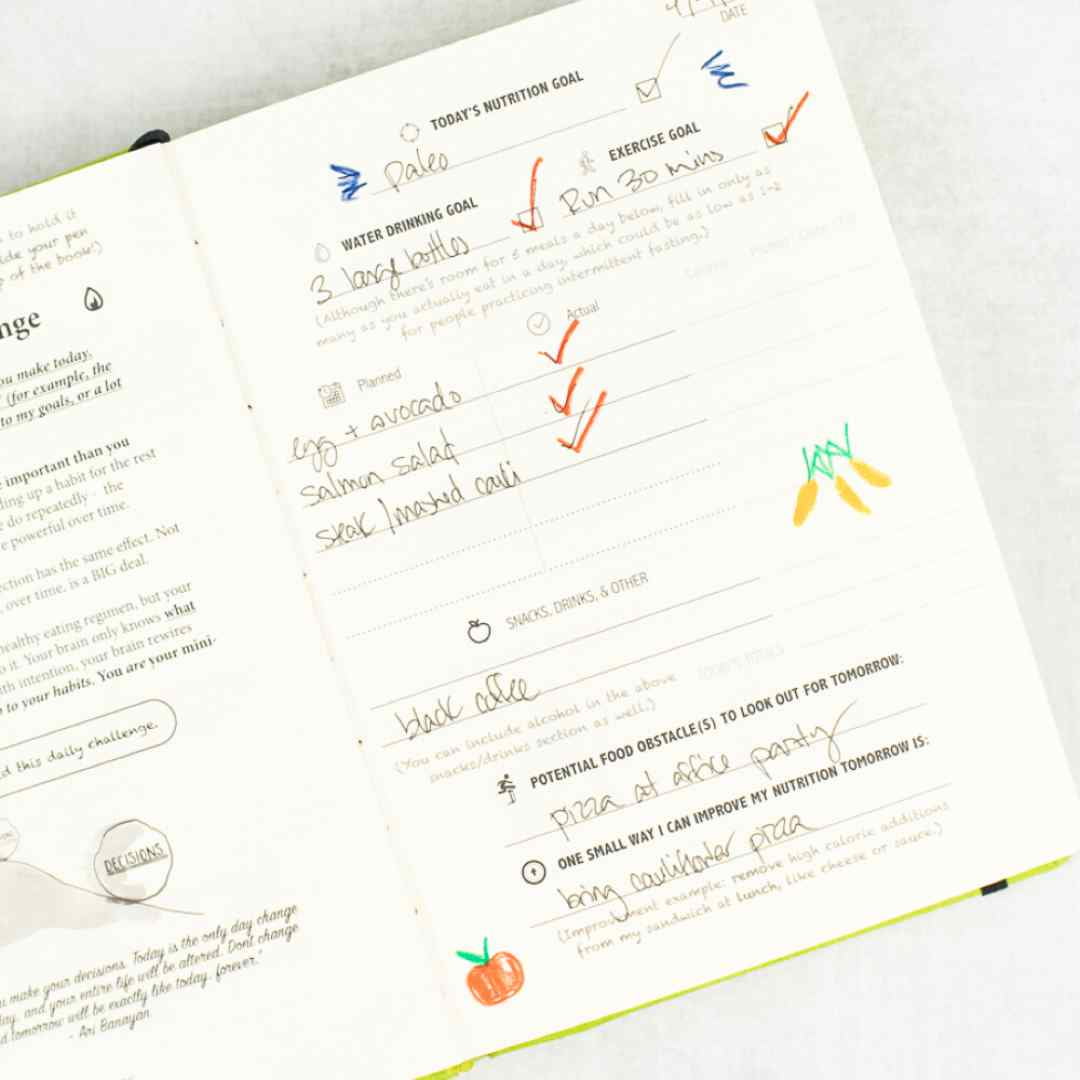 to hold it
ide your pen
of the book!)
nge
ou make today.
(for example, the
to my goals, or a lot
important than you
ding up a habit for the rest
e do repeatedly - the
e powerful over time.
ection has the same effect. Not
over time, is a BIG deal.
healthy eating regimen, but your
o it. Your brain only knows what
th intention, your brain rewires
to your habits. You are your mini-
d this daily challenge.
DECISIONS
make your decisions. Today is the only day change
day, and your entire life will be altered. Dont change
d tomorrow will be exactly like today, forever."
- Ari Banayan
DATE
TODAY'S NUTRITION GOAL
Paleo
EXERCISE GOAL
Run 30 mins
WATER DRINKING GOAL
3 large bottles
(Although there's room for 5 meals a day below, fill in only as
many as you actually eat in a day, which could be as low as 1-2
for people practicing intermittent fasting.)
Planned
Actual
egg + avocado
salmon salad
steak / mashed cauli
SNACKS, DRINKS, & OTHER
black coffee
TODAY'S TOTALS
(You can include alcohol in the above
snacks/drinks section as well.)
POTENTIAL FOOD OBSTACLE(S) TO LOOK OUT FOR TOMORROW:
pizza at office party
ONE SMALL WAY I CAN IMPROVE MY NUTRITION TOMORROW IS:
bring cauliflower pizza
(Improvement example: remove high calorie additions
from my sandwich at lunch, like cheese or sauce.)